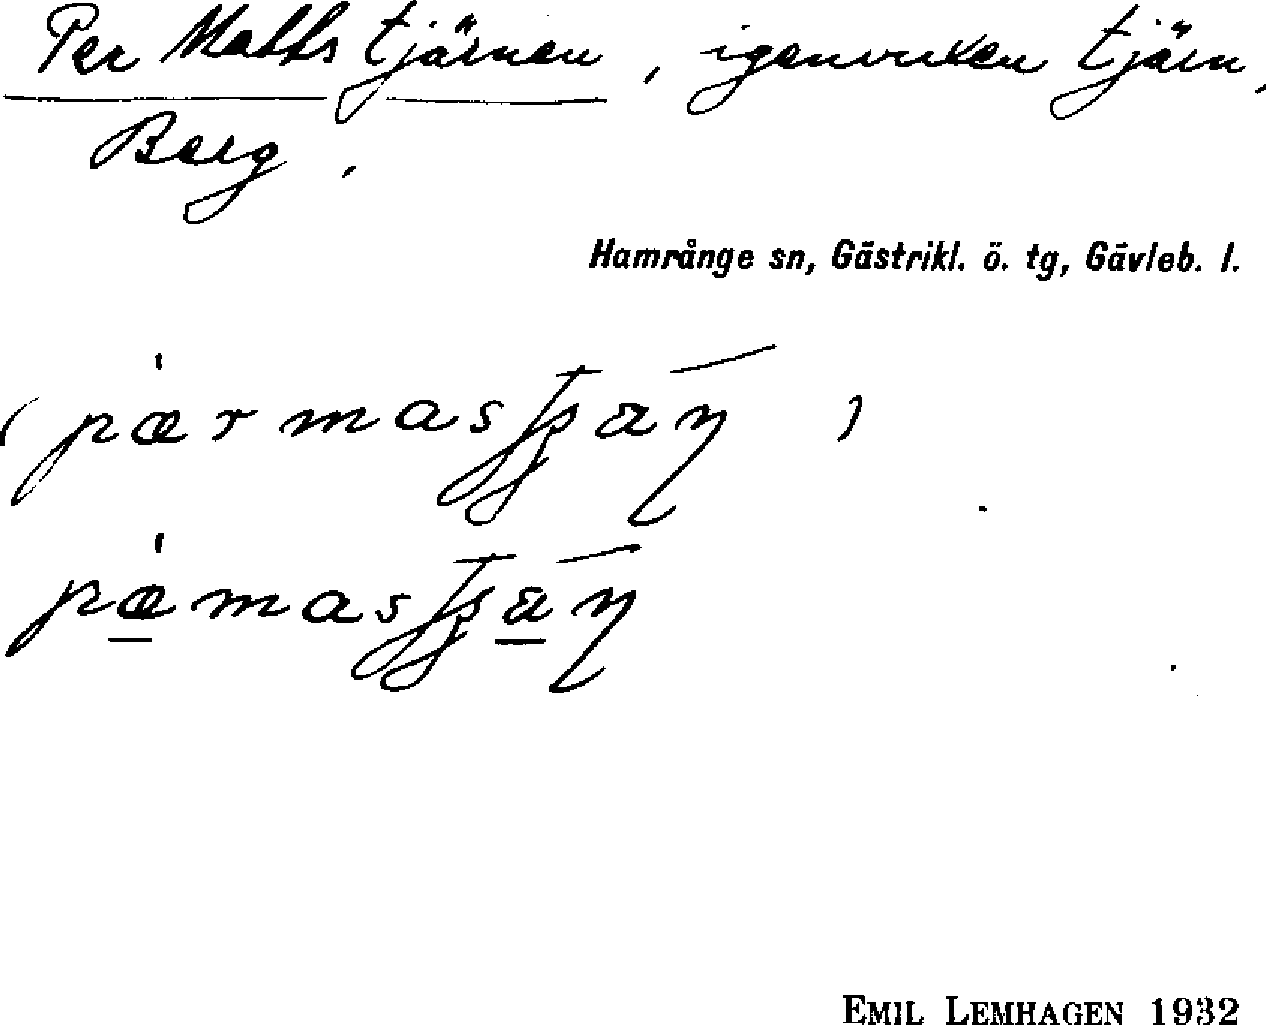 Per Matts tjärnen, igenvuxen tjärn,
Berg,
Hamrånge sn, Gästrikl. ö. tg, Gävleb. l.
EMIL LEMHAGEN 1932